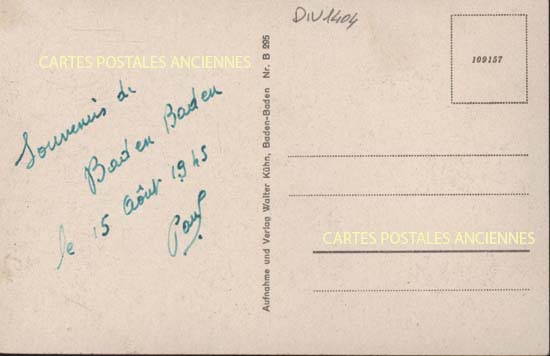 DIV1404
CARTES POSTALES ANCIENNES
Souvenirs de
Baden Baden
le 15 Août 1945
Paul
Aufnahme und Verlag Walter Kühn, Baden-Baden Nr. B 295
109157
CARTES POSTALES ANCIENNES